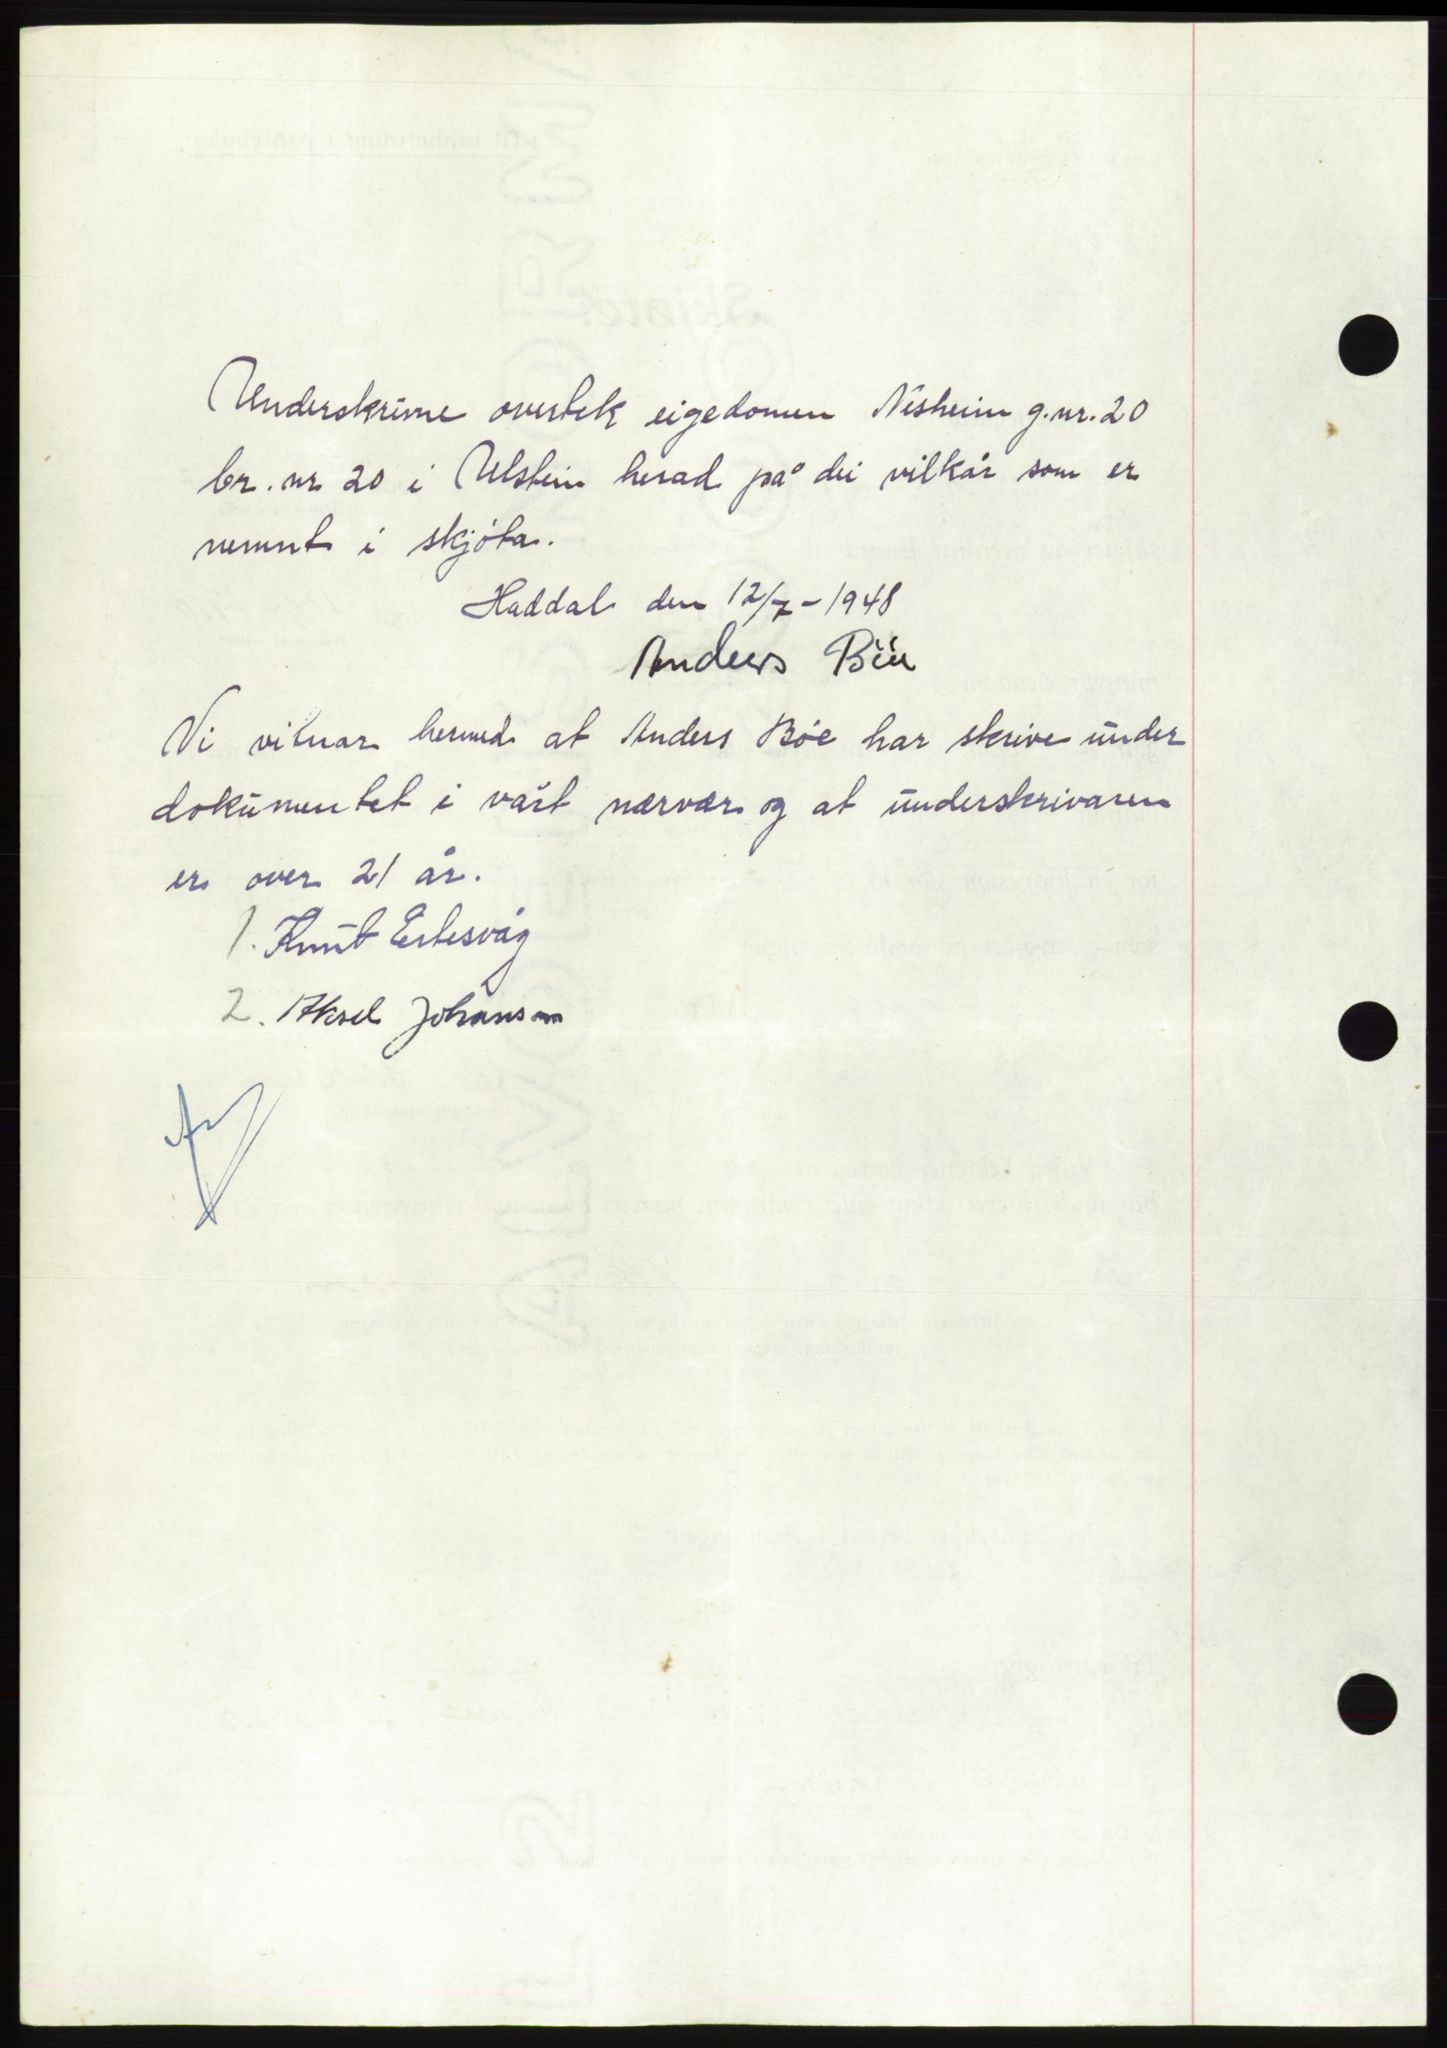 Underskrivne overtek eigedomen Nesheim g.nr. 20
br. nr. 20 i Ulstein herad på dei vilkår som er
nemnt i skjöta.
Haddal den 12/7 - 1948
Anders Böe
Vi vitnar hermed at Anders Böe har skrive under
dokumentet i vårt nærvær og at underskrivaren
er over 21 år.
1. Knut Eitesvåg
2. Aksel Johanson